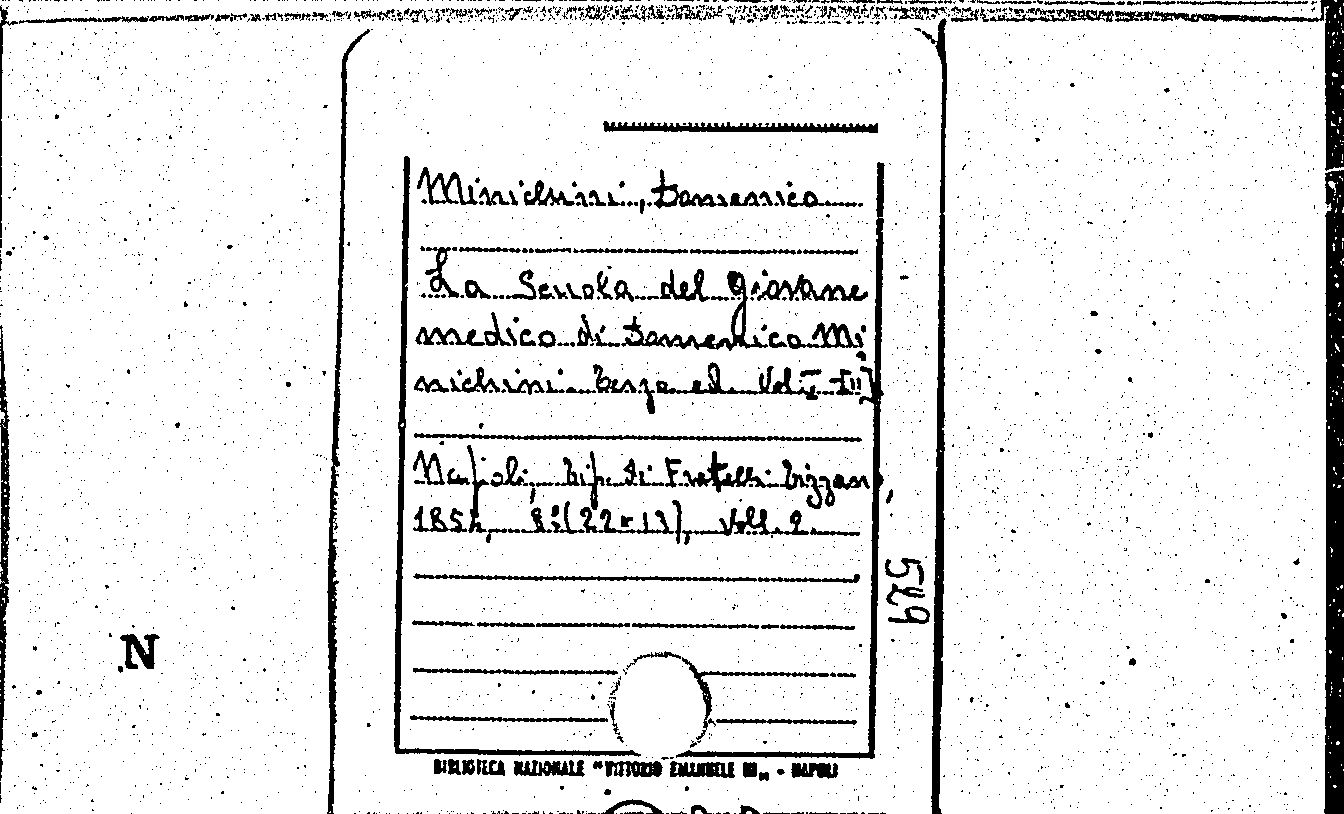 Minichini, Domenico
La Scuola del Giovane
medico di Domenico Mi
nichini. Terza ed. Vol. I[-II]
Napoli, Tip. di Fratelli Trizzano,
1854, 8°(22x13), Voll. 2.
529
N
BIBLIOTECA NAZIONALE "VITTORIO EMANUELE III„ - NAPOLI